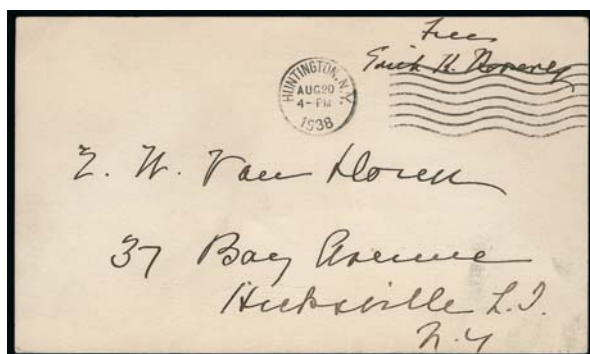 Free
Edith K. Roosevelt
HUNTINGTON, N.Y.
AUG 20
4-PM
1938
E. W. Van Doren
37 Bay Avenue
Hicksville L.I.
N.Y